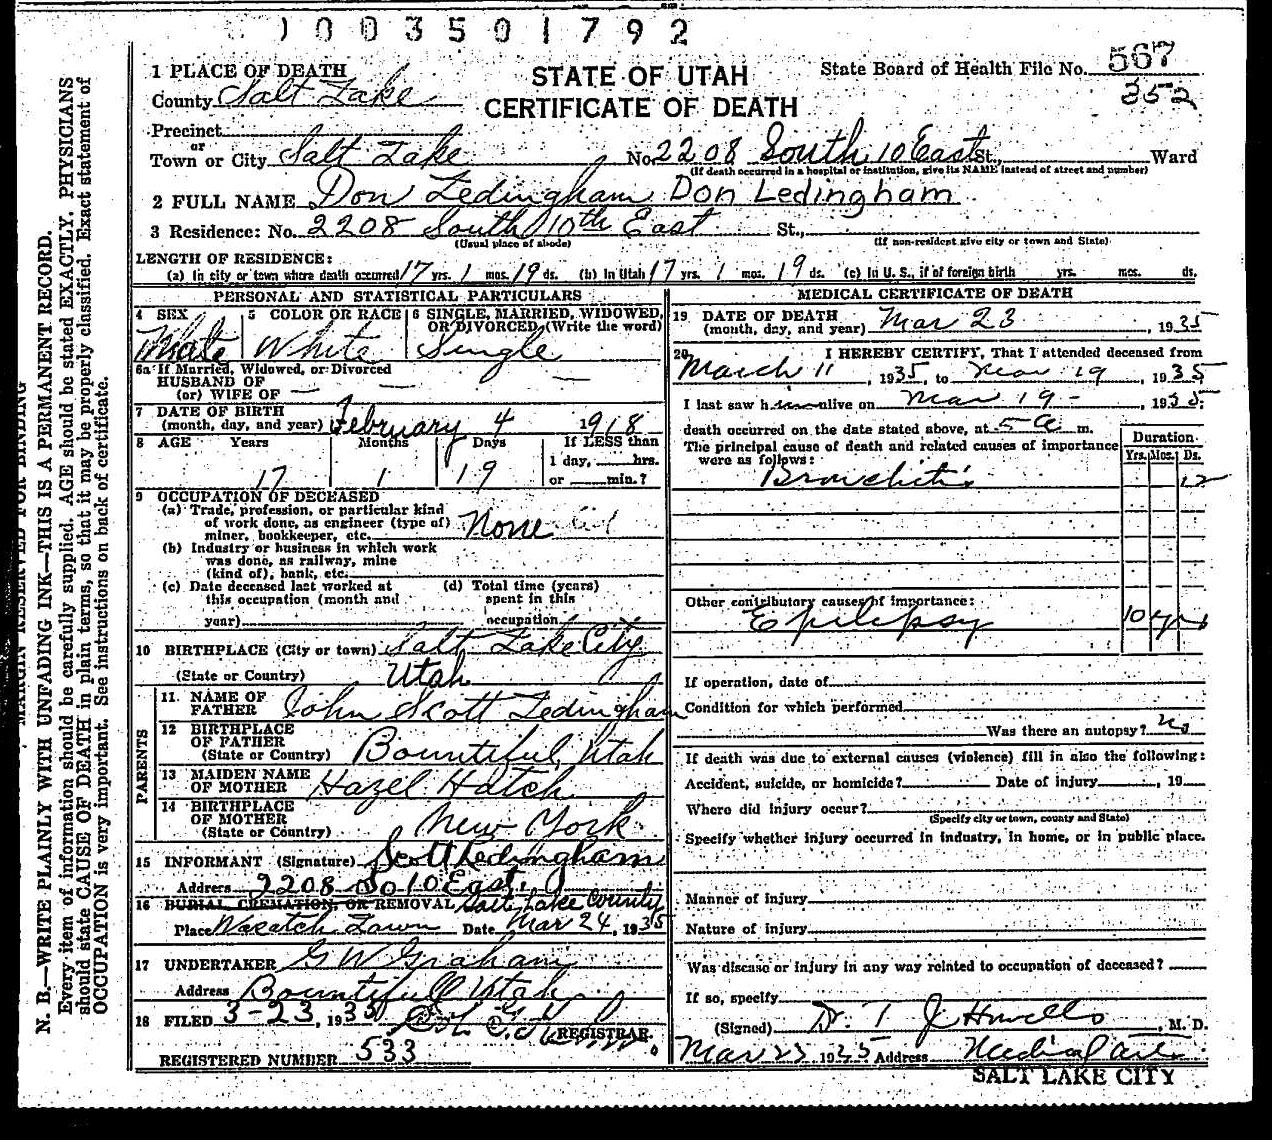 1003501792
STATE OF UTAH
CERTIFICATE OF DEATH
State Board of Health File No. 567
352
1 PLACE OF DEATH
County Salt Lake
Precinct
or
Town or City Salt Lake No. 2208 South 10 East St., Ward
(If death occurred in a hospital or institution, give its NAME instead of street and number)
2 FULL NAME Don Ledingham Don Ledingham
3 Residence: No. 2208 South 10th East St.,
(Usual place of abode) (If non-resident give city or town and State)
LENGTH OF RESIDENCE:
(a) In city or town where death occurred 17 yrs. 1 mos. 19 ds. (b) In Utah 17 yrs. 1 mos. 19 ds. (c) In U. S., if of foreign birth yrs. mos. ds.
PERSONAL AND STATISTICAL PARTICULARS
4 SEX 5 COLOR OR RACE 6 SINGLE, MARRIED, WIDOWED,
OR DIVORCED, (Write the word)
Male White Single
6a If Married, Widowed, or Divorced
HUSBAND OF
(or) WIFE OF —
7 DATE OF BIRTH
(month, day, and year) February 4 1918
8 AGE Years Months Days If LESS than
1 day, hrs.
or min.?
17 1 19
9 OCCUPATION OF DECEASED
(a) Trade, profession, or particular kind
of work done, as engineer (type of)
miner, bookkeeper, etc. None
(b) Industry or business in which work
was done, as railway, mine
(kind of), bank, etc.
(c) Date deceased last worked at
this occupation (month and
year)
(d) Total time (years)
spent in this
occupation
10 BIRTHPLACE (City or town) Salt Lake City
(State or Country) Utah
PARENTS
11. NAME OF
FATHER John Scott Ledingham
12 BIRTHPLACE
OF FATHER
(State or Country) Bountiful, Utah
13 MAIDEN NAME
OF MOTHER Hazel Hatch
14 BIRTHPLACE
OF MOTHER
(State or Country) New York
15 INFORMANT (Signature) Scott Ledingham
Address 2208 So 10 East.
16 BURIAL CREMATION, OR REMOVAL Salt Lake County
Place Wasatch Lawn Date Mar 24, 1935
17 UNDERTAKER G W Graham
Address Bountiful Utah
18 FILED 3-23, 1935
REGISTRAR.
REGISTERED NUMBER 533
MEDICAL CERTIFICATE OF DEATH
19 DATE OF DEATH
(month, day, and year) Mar 23 1935
20 I HEREBY CERTIFY, That I attended deceased from
March 11, 1935, to Mar 19, 1935
I last saw him alive on Mar 19 - 1935:
death occurred on the date stated above, at 5 a m.
The principal cause of death and related causes of importance
were as follows:
Duration
Yrs. Mos. Ds.
Bronchitis 12
Other contributory causes of importance:
Epilepsy 10 yrs
If operation, date of
Condition for which performed
Was there an autopsy? no
If death was due to external causes (violence) fill in also the following:
Accident, suicide, or homicide? Date of injury, 19
Where did injury occur?
(Specify city or town, county and State)
Specify whether injury occurred in industry, in home, or in public place.
Manner of injury
Nature of injury
Was disease or injury in any way related to occupation of deceased?
If so, specify
(Signed) Dr. T J Howells, M. D.
Mar 23 1935 Address Medical Arts
SALT LAKE CITY
MARGIN RESERVED FOR BINDING
N. B.—WRITE PLAINLY WITH UNFADING INK—THIS IS A PERMANENT RECORD.
Every item of information should be carefully supplied. AGE should be stated EXACTLY. PHYSICIANS
should state CAUSE OF DEATH in plain terms, so that it may be properly classified. Exact statement of
OCCUPATION is very important. See instructions on back of certificate.